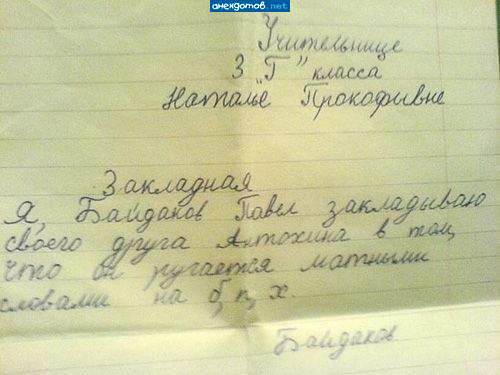 анекдотов.net
Учительнице
3 „Г" класса
Наталье Прокофивне
Закладная
Я, Байдаков Павел закладываю
своего друга Антохина в том,
что он ругается матными
словами на б, п, х.
Байдаков